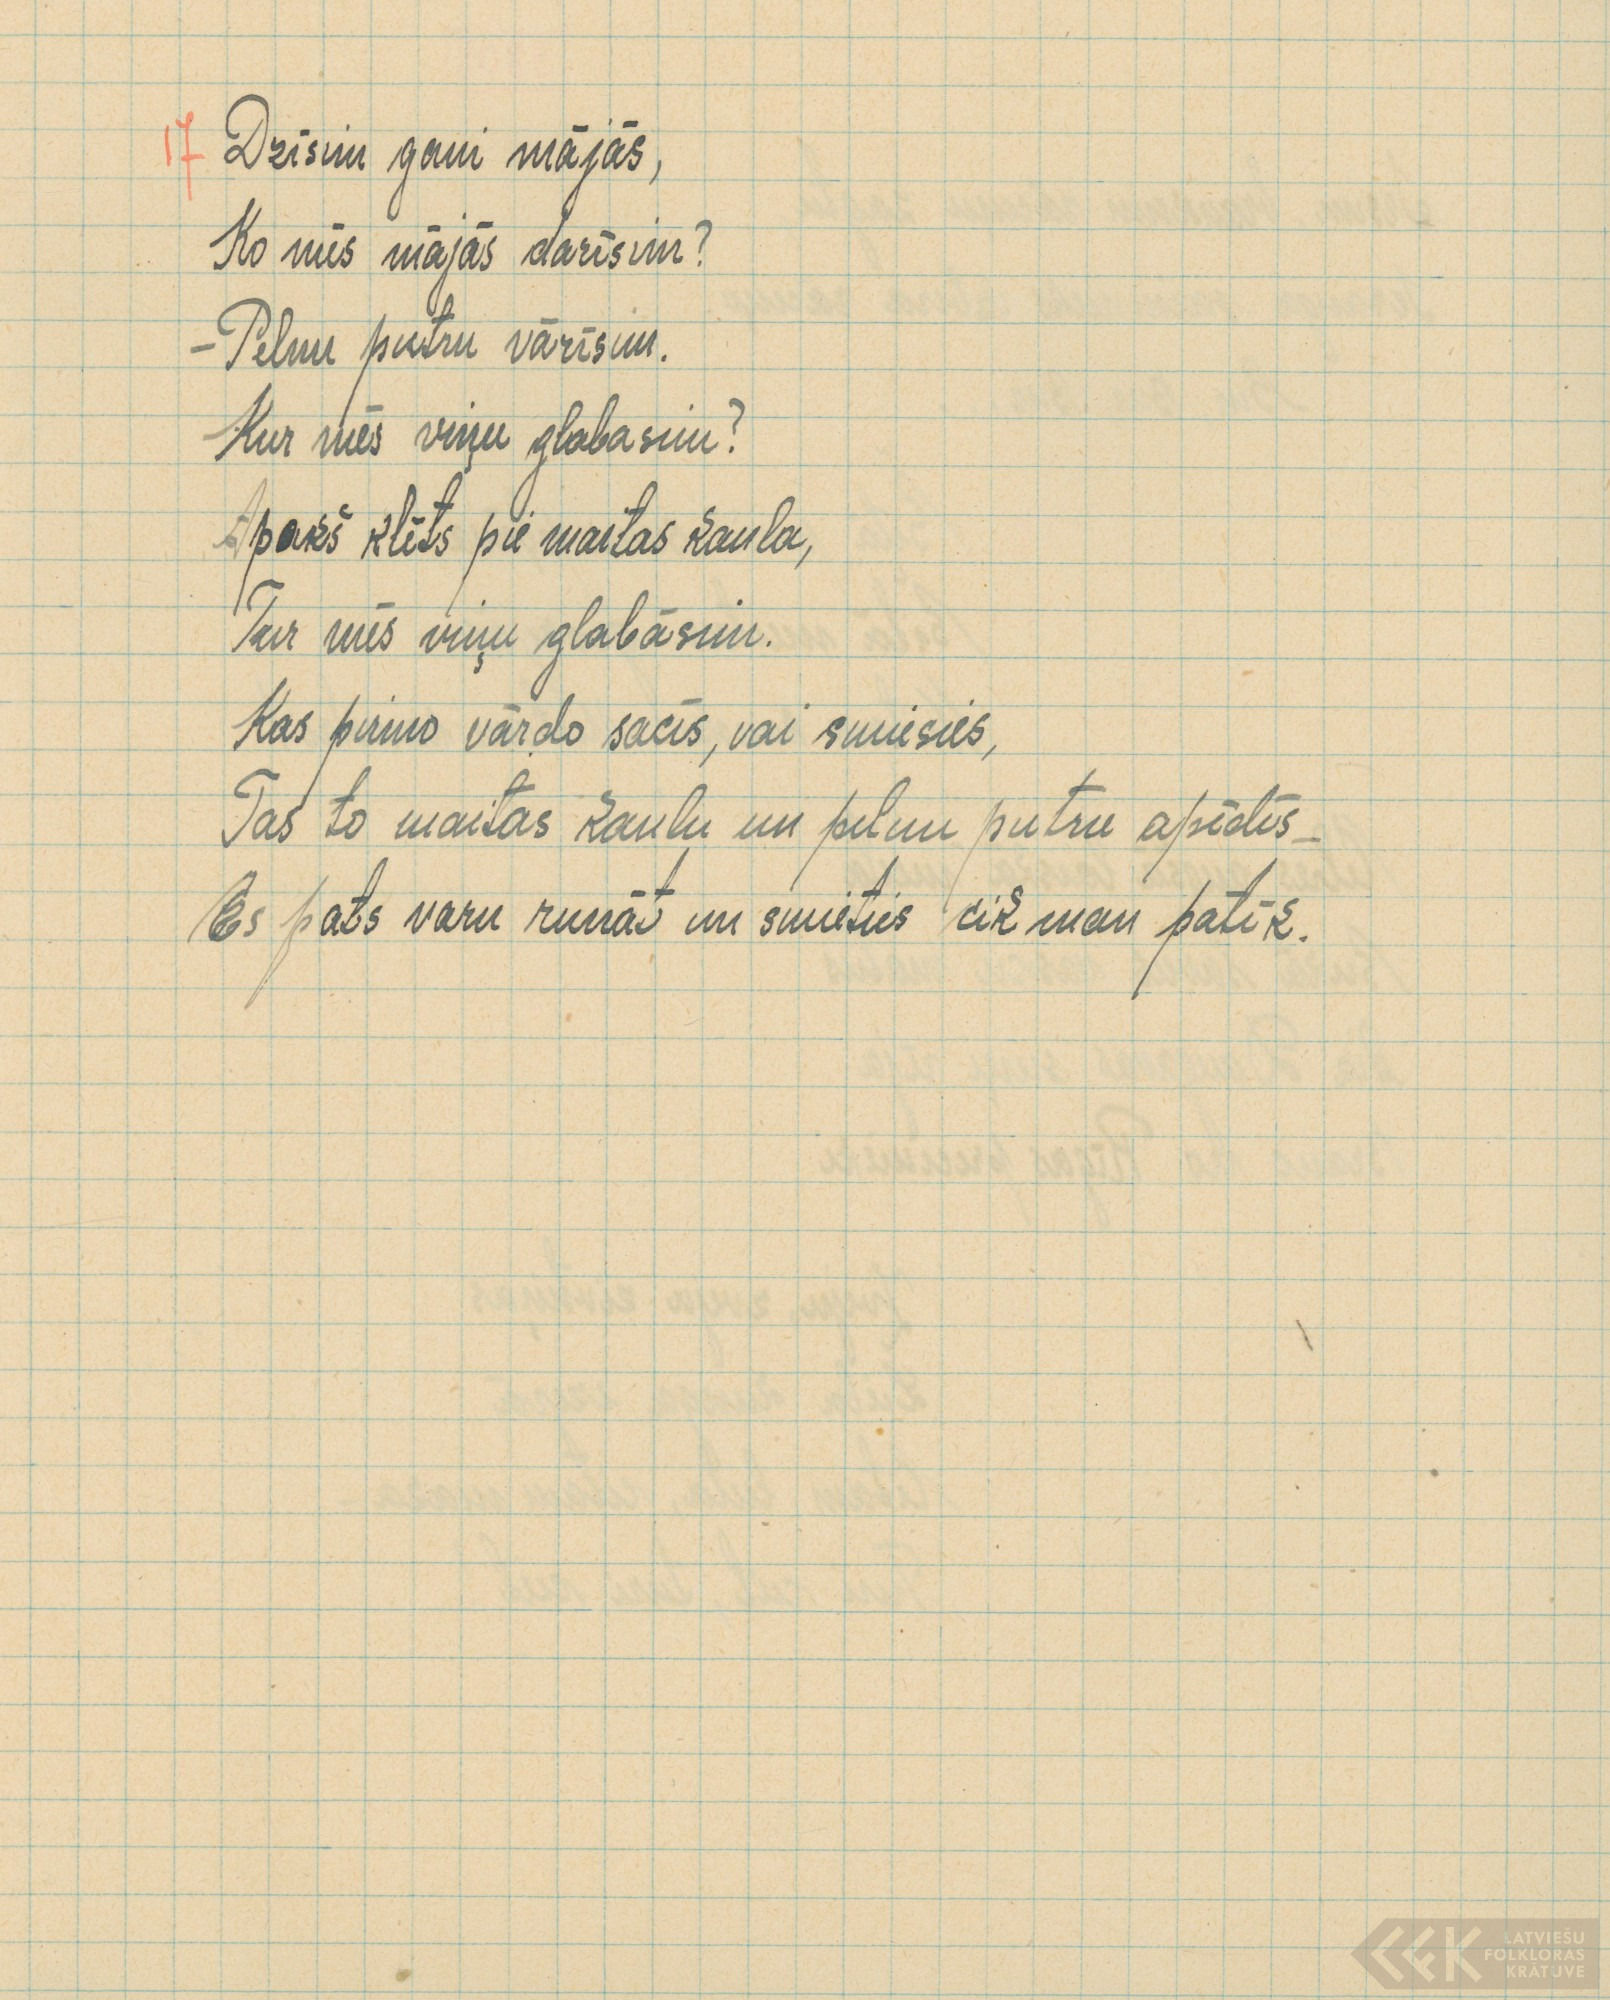 17 Dzīsim gani mājās,
Ko mēs mājās darīsim?
– Pelnu putru vārīsim.
- Kur mēs viņu glabasim?
Apakš klēts pie maitas kaula,
Tur mēs viņu glabāsim.
Kas pirmo vārdo sacīs, vai smiesies,
Tas to maitas kaulu un pelnu putru apēdīs –
Es pats varu runāt un smieties cik man patīk.
LATVIEŠU
FOLKLORAS
KRĀTUVE